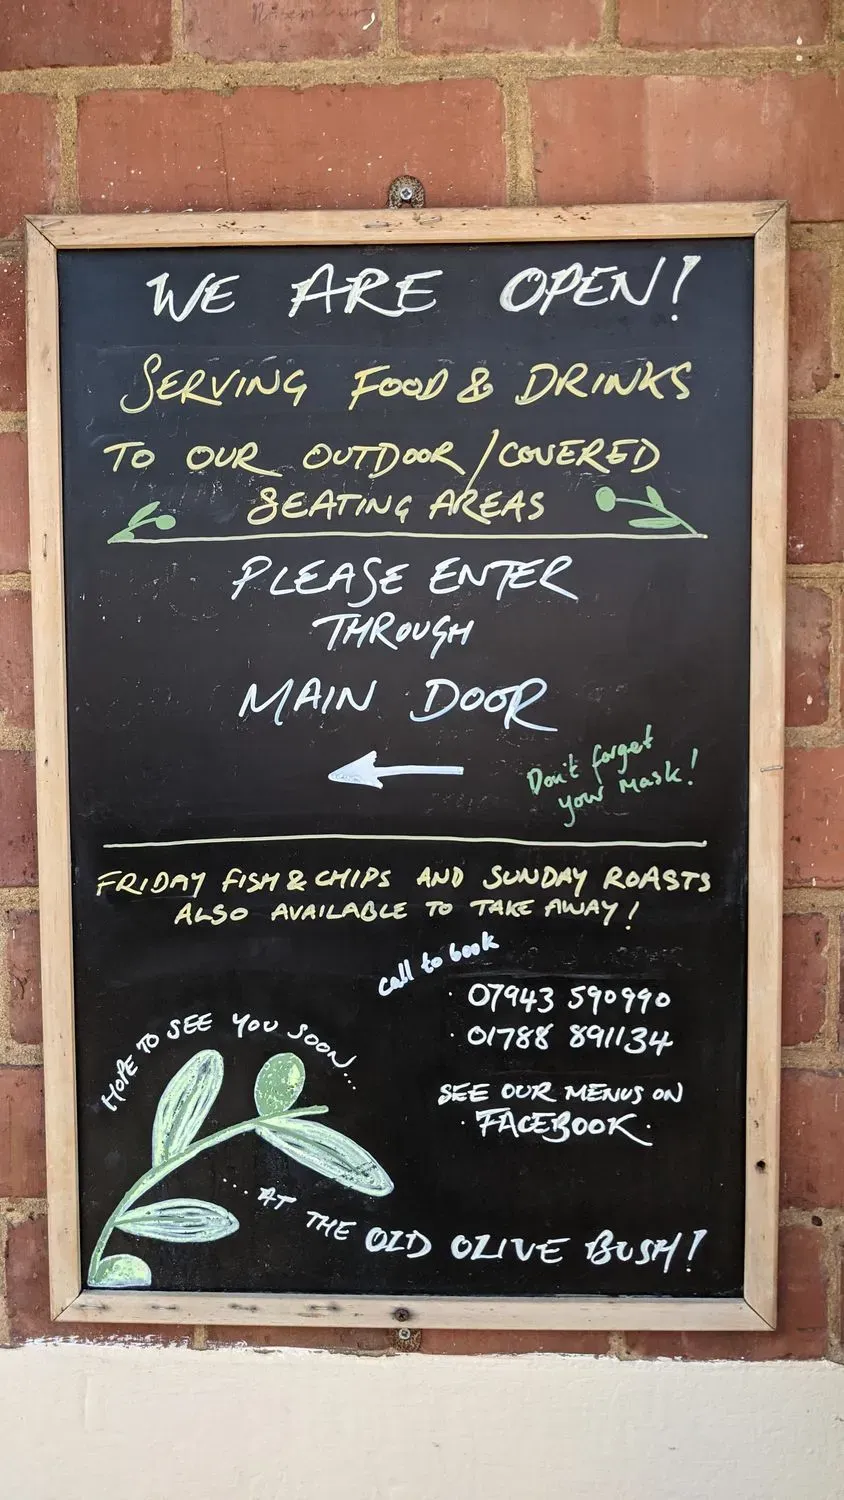 WE ARE OPEN!
SERVING FOOD & DRINKS
TO OUR OUTDOOR/COVERED
SEATING AREAS
PLEASE ENTER
THROUGH
MAIN DOOR
Don't forget
your mask!
FRIDAY FISH & CHIPS AND SUNDAY ROASTS
ALSO AVAILABLE TO TAKE AWAY!
call to book
· 07943 590990
· 01788 891134
SEE OUR MENUS ON
· FACEBOOK ·
HOPE TO SEE YOU SOON...
...AT THE OLD OLIVE BUSH!